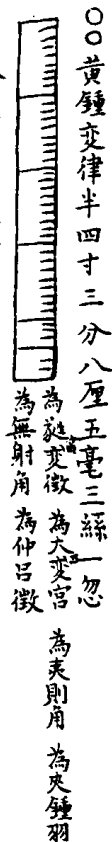 ○○黄鍾變律半四寸三分八厘五毫三絲一忽
為蕤變徵 為大變宮 為夷則角 為夾鍾羽
為無射角 為仲呂徵